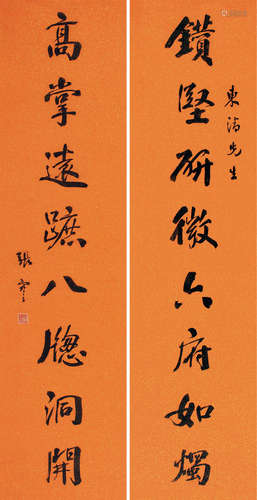 東濤先生
鑽堅研微六府如燭
高掌遠蹠八牕洞開
張謇